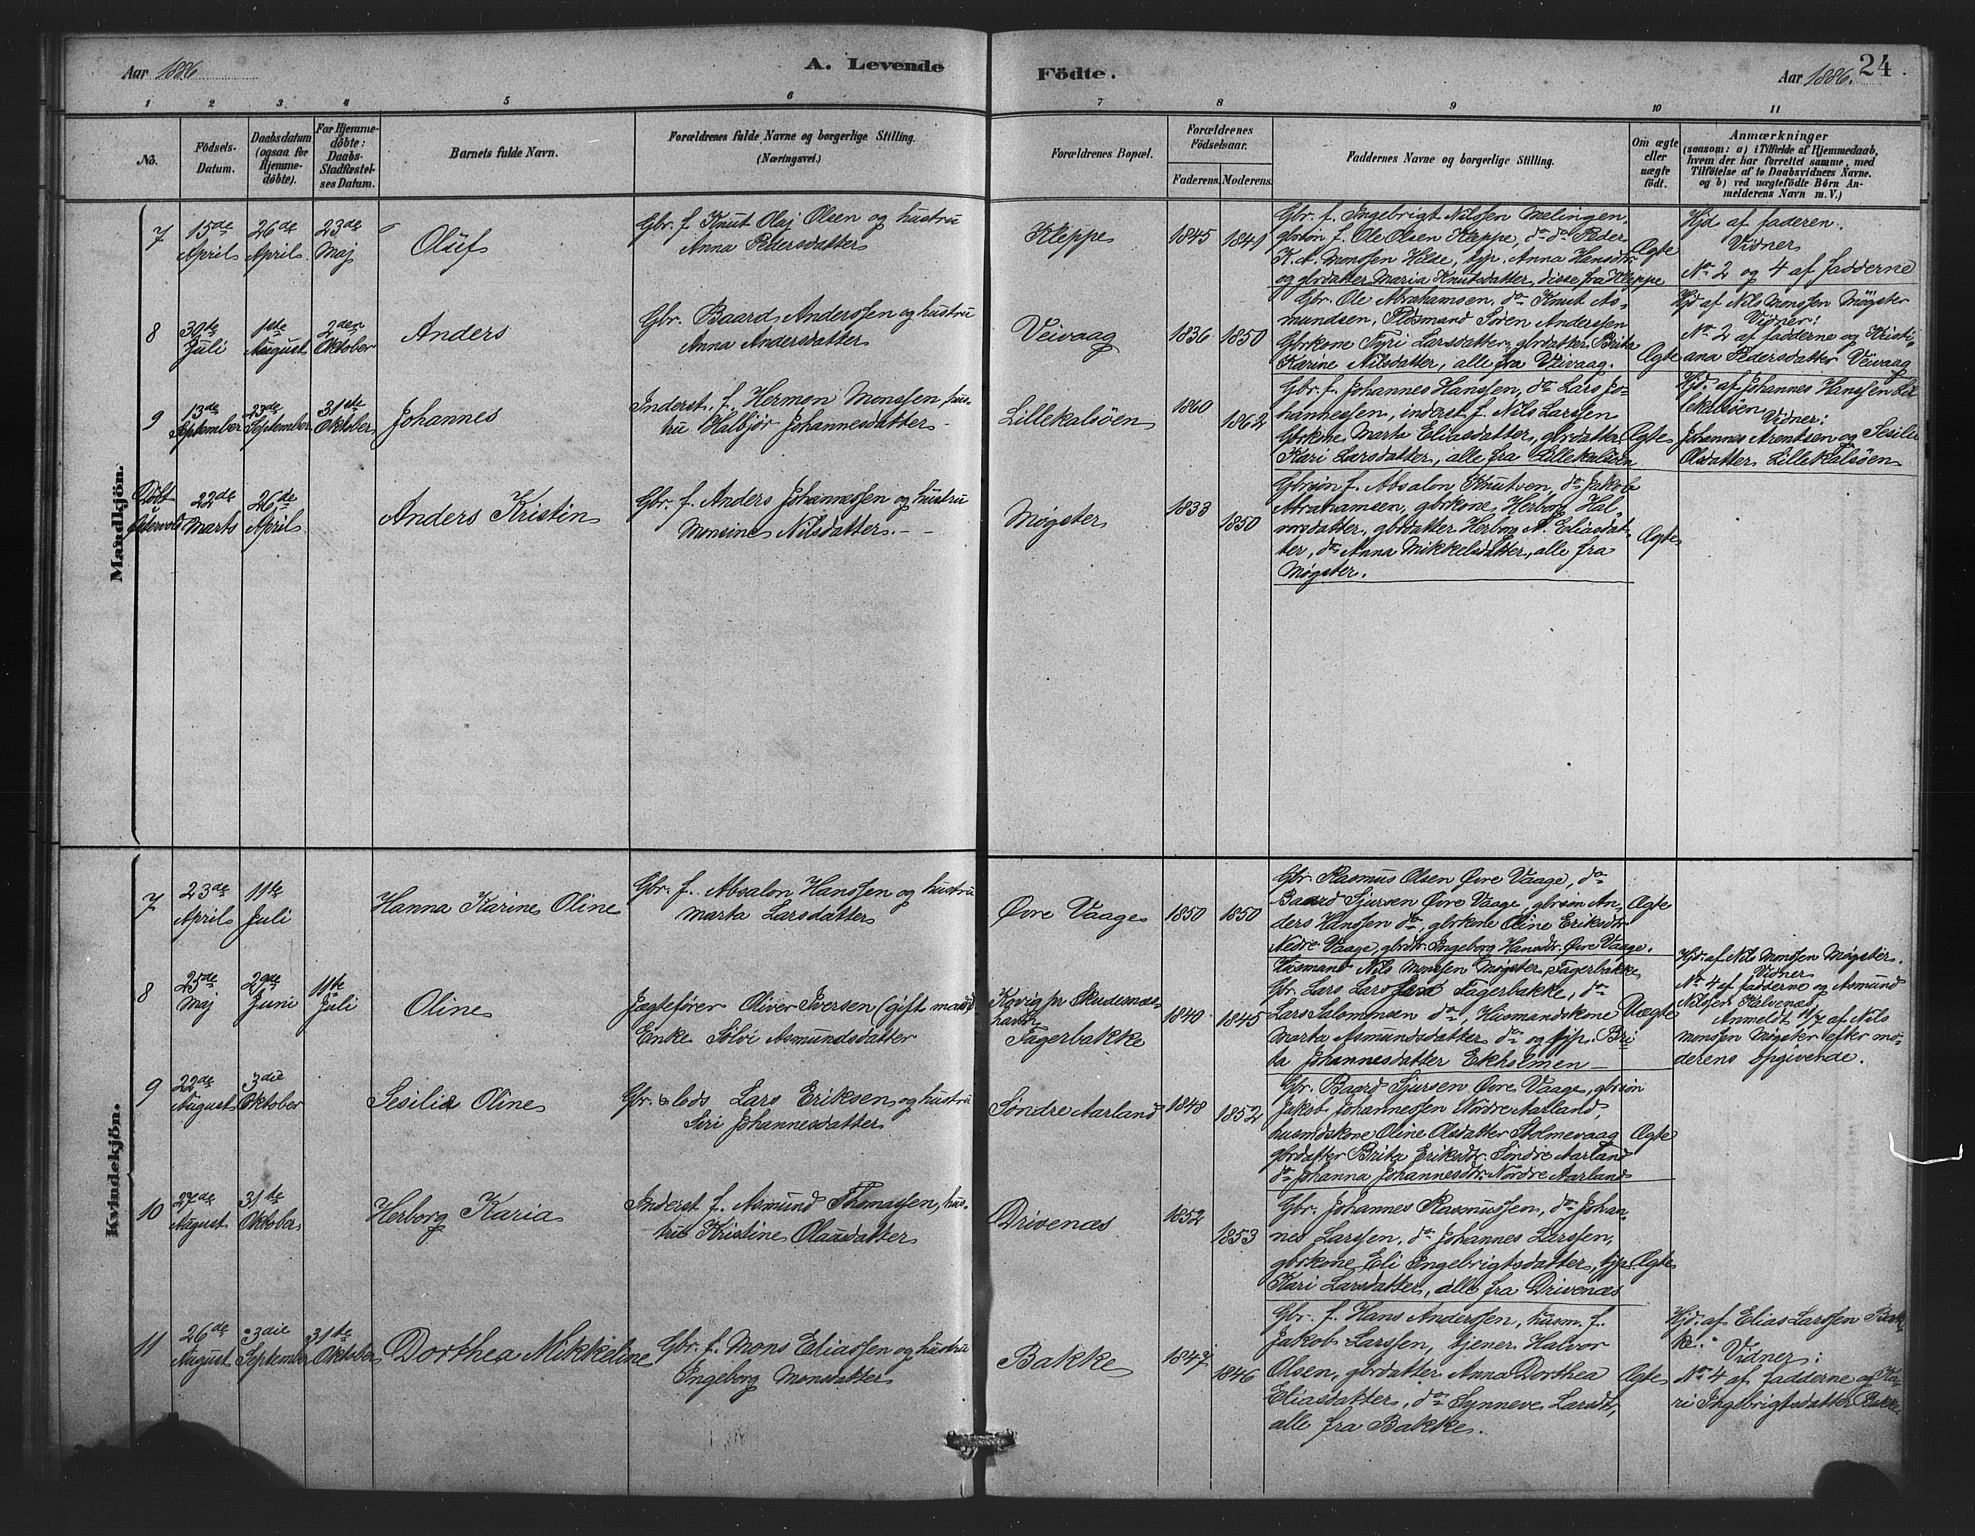 Aar 1886
A. Levende
Födte.
Aar 1886. 24.
1 2 3 4 5 6 7 8 9 10 11
No.
Födsels-
Datum.
Daabsdatum
(ogsaa for
Hjemme-
döbte).
For Hjemme-
döbte:
Daabs-
Stadfæstel-
ses Datum.
Barnets fulde Navn.
Forældrenes fulde Navne og borgerlige Stilling.
(Næringsvei.)
Forældrenes Bopæl.
Forældrenes
Födselsaar.
Faderens. Moderens.
Faddernes Navne og borgerlige Stilling.
Om ægte
eller
uægte
födt.
Anmærkninger
(saasom: a) i Tilfælde af Hjemmedaab,
hvem der har forrettet samme, med
Tilföielse af to Daabsvidners Navne,
og b) ved uægtefödte Börn An-
melderens Navn m. V.)
Mandkjön.
7
15de
April
26de
April
23de
Maj
Oluf
Gbr. f. Knut Olaj Olsen og hustru
Anna Pedersdatter
Kleppe
1845
1841
Gbr. f. Ingebrigt Nilssen Mælingen,
gbrsøn f. Ole Olsen Kleppe, do do Peder
K. A. Monssen Hilde, tjp. Anna Hansdtr.
og gbrdatter Maria Knutsdatter, disse fra Kleppe
Ægte
Hjd af faderen.
Vidner
No 2 og 4 af fadderne
8
30te
Juli
1ste
August
2den
Oktober
Anders
Gbr. Baard Anderssen og hustru
Anna Andersdatter
Veivaag
1836
1850
Gbr. Ole Abrahamsen, do Knut As-
mundsen, Plds­mand Søren Anderssen
Gbrkone Syri Larsdatter, gbrdatter Brita
Karine Nilsdatter, alle fra Veivaag.
Ægte
Hjd af Nils Monssen Møgster
Vidner:
No 2 af fadderne og Kristi-
ana Pedersdatter Veivaag
9
13de
September
23de
September
31ste
Oktober
Johannes
Inderst. f. Hermon Monssen, hus-
tru Halbjør Johannesdatter
Lillekalsöen
1860
1862
Gbr. f. Johannes Hanssen, do Lars Jo-
hannessen, inderst f. Nils Larssen
Gbrkone Marta Eliasdatter, gbrdatter
Kari Larsdatter, alle fra Lillekalsöen
Ægte
Hjd. af Johannes Hanssen Lil-
lekalsöen
Vidner:
Johannes Arentsen og Sesilie
Olsdatter Lillekalsöen
Døbt
i
Østervold
22de
Marts
26de
April
Anders Kristin
Gbr. f. Anders Johannessen og hustru
Monsine Nilsdatter.
Møgster
1833
1850
Gbrsøn f. Absalon Knutven, do Jakob
Abrahamsen, gbrkone Herborg Hal-
vorsdatter, gbrdatter Herborg N. Eliasdat-
ter, do Anna Mikkelsdatter, alle fra
Møgster.
Ægte
Kvindekjön.
7
23de
April
11te
Juli
Hanna Karine Oline
Gbr. f. Absalon Hanssen og hustru
Marta Larsdatter
Øvre Vaage
1850
1850
Gbr. Rasmus Olsen Øvre Vaage, do
Baard Sjursen Øvre Vaage, gbrsøn An-
ders Hanssen do, gbrkone Oline Eriksdtr
Nedre Vaage, gbrdtr. Ingeborg Hansdtr. Øvre Vaage.
Ægte
8
25de
Maj
29de
Juni
11te
Juli
Oline
Jægtefører Oliver Iversen (gift mand)
Enke Sölvi Asmundsdatter
Kovig pr Skudenæs-
havn
Fagerbakke
1840
1845
Husmand Nils Monssen Møgster Fagerbakke
Gbr. Lars Larssen Fagerbakke, do
Lars Salomonsen do, Husmandskone
Marta Asmundsdatter do og tjp. Bri
ta Johannesdatter Ekholmen
Uægte
Hjd. af Nils Monssen Møgster.
Vidner
No 4 af fadderne og Asmund
Nilssen Kalvenæs
Anmeldt 4/7 af Nils
Monssen Møgster efter mo-
derens opgivende.
9
22de
August
3die
Oktober
Sesilia Oline
Gbr. & lods Lars Eriksen og hustru
Siri Johannesdatter
Søndre Aarland
1848
1852
Gbr. Baard Sjursen Øvre Vaage, gbrsøn
Jakob Johannessen Nordre Aarland,
husmdskone Oline Olsdatter Stolmevaag
gbrdatter Brita Eriksdtr. Søndre Aarland
do Johanna Johannesdtr. Nordre Aarland
Ægte
10
27de
August
31te
Oktober
Herborg Karia
Inderst f. Asmund Thomassen, hus-
tru Kristine Olausdatter
Drivenæs
1852
1853
Gbr. Johannes Rasmussen, do Johan-
nes Larssen, do Johannes Larssen,
gbrkone Eli Ingebrigtsdatter, tjp.
Kari Larsdatter, alle fra Drivenæs
Ægte
11
26de
August
3die
September
31te
Oktober
Dorthea Mikkeline
Gbr. f. Mons Eliassen og hustru
Ingeborg Monsdatter
Bakke
1847
1846
Gbr. f. Hans Anderssen, husm. f.
Jakob Larssen, tjener Halvor
Olsen, gbrdatter Anna Dorthea
Eliasdatter, do Synneve Larsdtr,
alle fra Bakke.
Ægte
Hjd. af Elias Larssen Bak-
ke.
Vidner:
No 4 af fadderne og Ka-
ri Ingebrigtsdatter Bakke